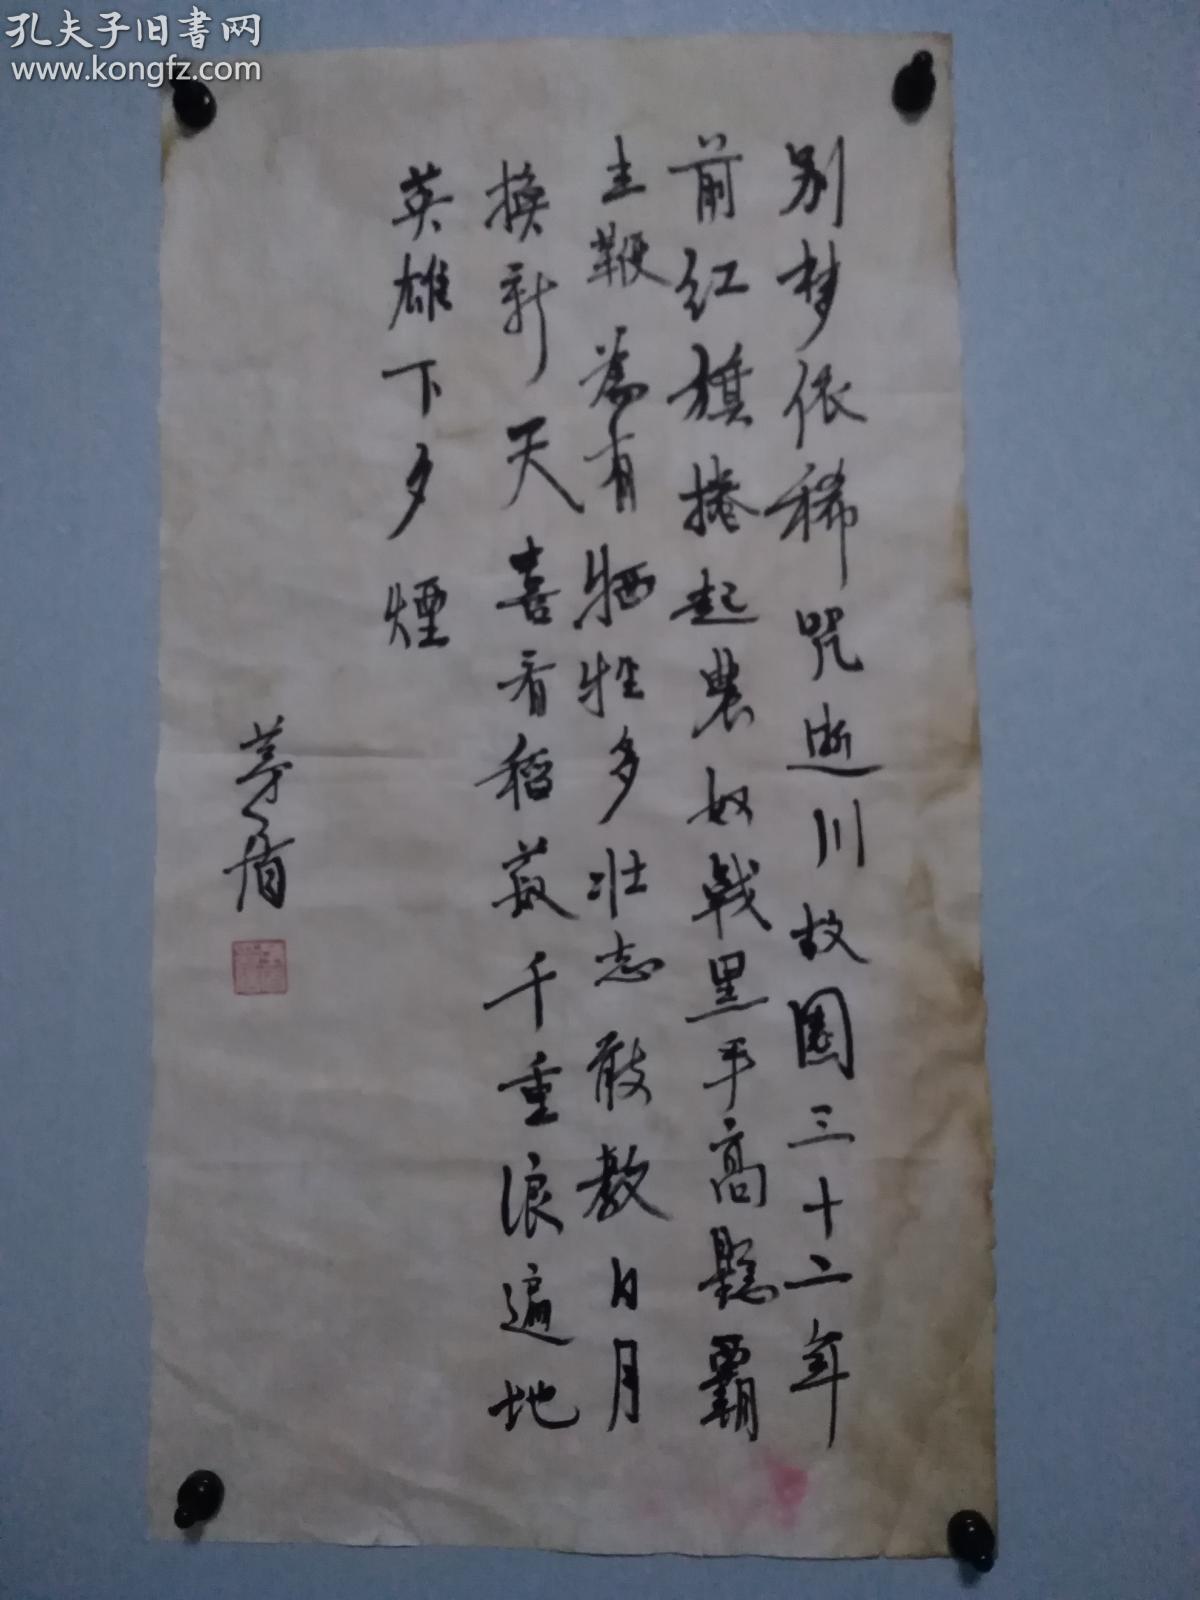 孔夫子旧書网
www.kongfz.com
别梦依稀咒逝川故園三十二年
前红旗捲起農奴戟黑手高懸霸
主鞭為有牺牲多壮志敢教日月
换新天喜看稻菽千重浪遍地
英雄下夕煙
茅盾